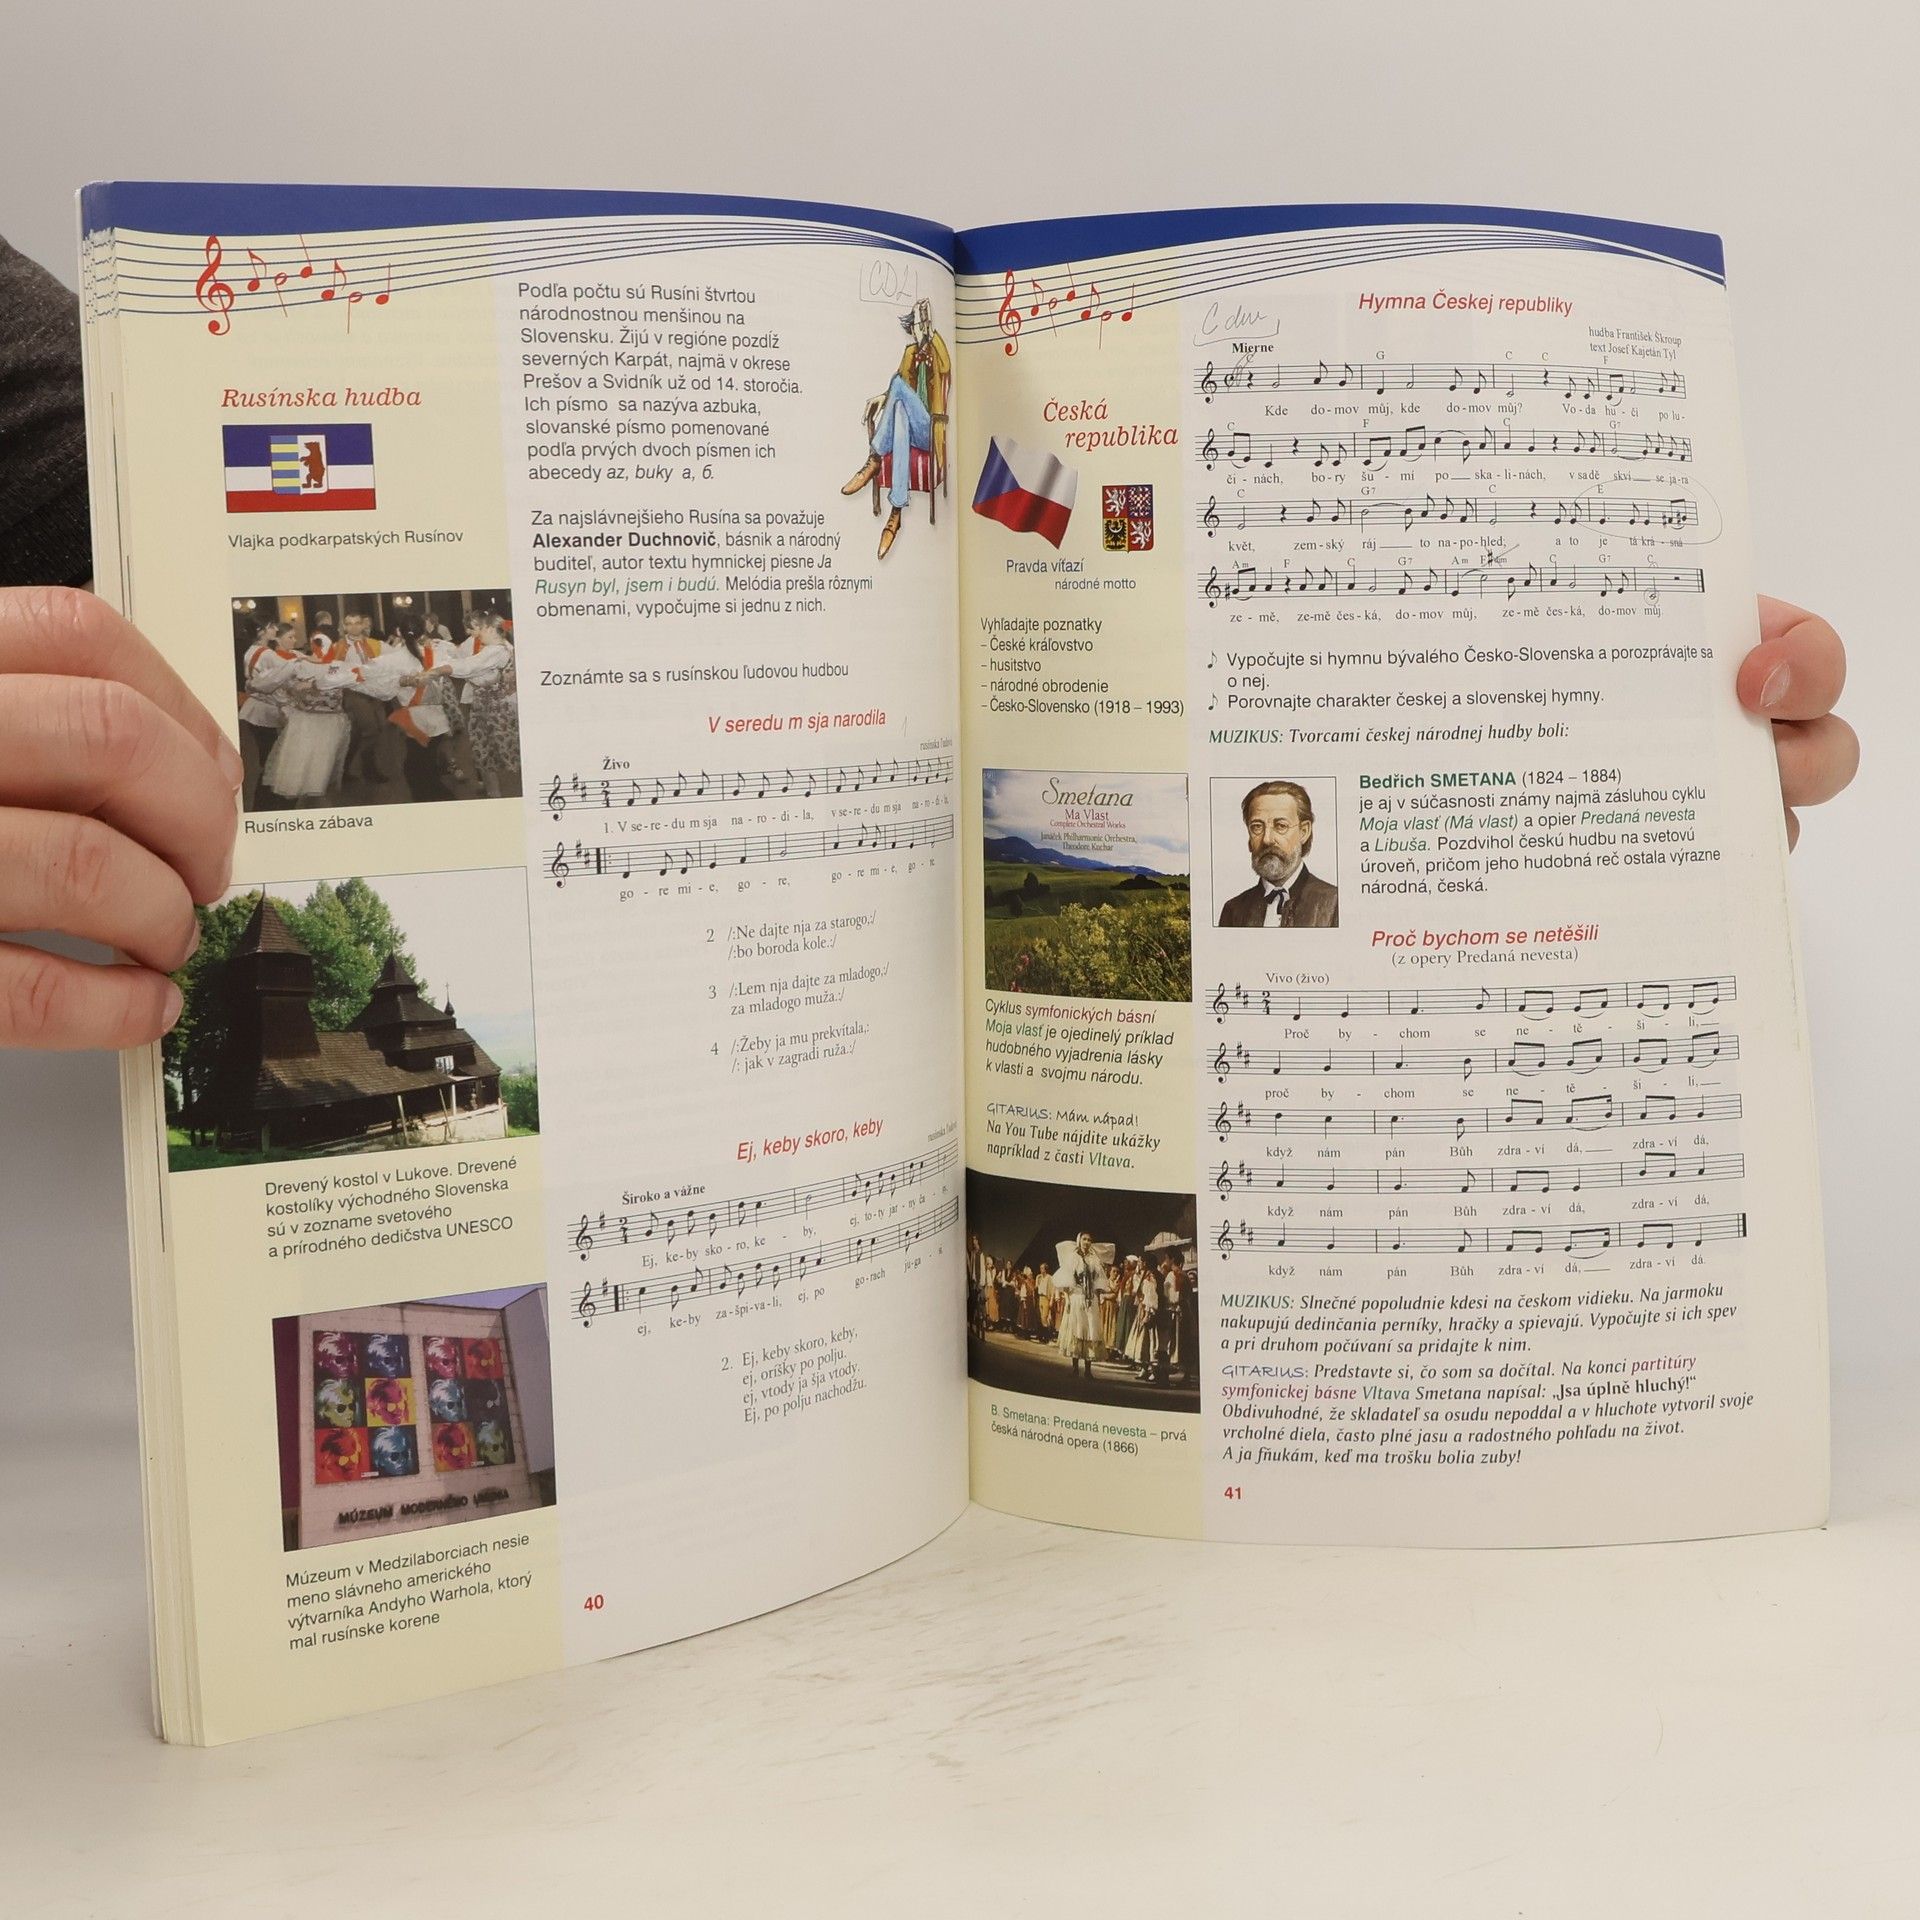 Rusínska hudba
Vlajka podkarpatských Rusínov
Rusínska zábava
Drevený kostol v Lukove. Drevené
kostolíky východného Slovenska
sú v zozname svetového
a prírodného dedičstva UNESCO
MÚZEUM MODERNÉHO UMENIA
Múzeum v Medzilaborciach nesie
meno slávneho amerického
výtvarníka Andyho Warhola, ktorý
mal rusínske korene
Podľa počtu sú Rusíni štvrtou
národnostnou menšinou na
Slovensku. Žijú v regióne pozdĺž
severných Karpát, najmä v okrese
Prešov a Svidník už od 14. storočia.
Ich písmo sa nazýva azbuka,
slovanské písmo pomenované
podľa prvých dvoch písmen ich
abecedy az, buky a, б.
Za najslávnejšieho Rusína sa považuje
Alexander Duchnovič, básnik a národný
buditeľ, autor textu hymnickej piesne Ja
Rusyn byl, jsem i budú. Melódia prešla rôznymi
obmenami, vypočujme si jednu z nich.
Zoznámte sa s rusínskou ľudovou hudbou
V seredu m sja narodila
rusínska ľudová
Živo
1. V se-re-du m sja na-ro-di-la, v se-re-du m sja na-ro-di-la,
go-re mi-e, go-re, go-re mi-e, go-re
2 /:Ne dajte nja za starogo,:/
/:bo boroda kole.:/
3 /:Lem nja dajte za mladogo,:/
za mladogo muža.:/
4 /:Žeby ja mu prekvitala,:
/: jak v zagradi ruža.:/
Ej, keby skoro, keby
rusínska ľudová
Široko a vážne
Ej, ke-by sko-ro, ke-by, ej, to-ty jar-ny ča-sy,
ej, ke-by za-špi-va-li, ej, po go-rach ju-ga-si
2. Ej, keby skoro, keby,
ej, oríšky po polju.
ej, vtody ja šja vtody.
Ej, po polju nachodžu.
40
Česká
republika
Pravda víťazí
národné motto
Vyhľadajte poznatky
– České kráľovstvo
– husitstvo
– národné obrodenie
– Česko-Slovensko (1918 – 1993)
Smetana
Ma Vlast
Complete Orchestral Works
Janáček Philharmonic Orchestra,
Theodore Kuchar
Cyklus symfonických básní
Moja vlasť je ojedinelý príklad
hudobného vyjadrenia lásky
k vlasti a svojmu národu.
GITARIUS: Mám nápad!
Na You Tube nájdite ukážky
napríklad z časti Vltava.
B. Smetana: Predaná nevesta – prvá
česká národná opera (1866)
Hymna Českej republiky
hudba František Škroup
text Josef Kajetán Tyl
Mierne
G C C F
Kde do-mov můj, kde do-mov můj? Vo-da hu-čí po lu-
C F C G7
či-nách, bo-ry šu-mí po ska-li-nách, v sadě skví se ja-ra
C G7 C E
květ, zem-ský ráj to na-po-hled; a to je tá krá-sná
Am F C G7 Am C G7 C
ze-mě, ze-mě čes-ká, do-mov můj, ze-mě čes-ká, do-mov můj.
♪ Vypočujte si hymnu bývalého Česko-Slovenska a porozprávajte sa
o nej.
♪ Porovnajte charakter českej a slovenskej hymny.
MUZIKUS: Tvorcami českej národnej hudby boli:
Bedřich SMETANA (1824 – 1884)
je aj v súčasnosti známy najmä zásluhou cyklu
Moja vlasť (Má vlast) a opier Predaná nevesta
a Libuša. Pozdvihol českú hudbu na svetovú
úroveň, pričom jeho hudobná reč ostala výrazne
národná, česká.
Proč bychom se netěšili
(z opery Predaná nevesta)
Vivo (živo)
Proč by-chom se ne-tě-ši-li,
proč by-chom se ne-tě-ši-li,
když nám pán Bůh zdra-ví dá, zdra-ví dá,
když nám pán Bůh zdra-ví dá, zdra-ví dá,
když nám pán Bůh zdra-ví dá, zdra-ví dá.
MUZIKUS: Slnečné popoludnie kdesi na českom vidieku. Na jarmoku
nakupujú dedinčania perníky, hračky a spievajú. Vypočujte si ich spev
a pri druhom počúvaní sa pridajte k nim.
GITARIUS: Predstavte si, čo som sa dočítal. Na konci partitúry
symfonickej básne Vltava Smetana napísal: „Jsa úplně hluchý!“
Obdivuhodné, že skladateľ sa osudu nepoddal a v hluchote vytvoril svoje
vrcholné diela, často plné jasu a radostného pohľadu na život.
A ja fňukám, keď ma trošku bolia zuby!
41